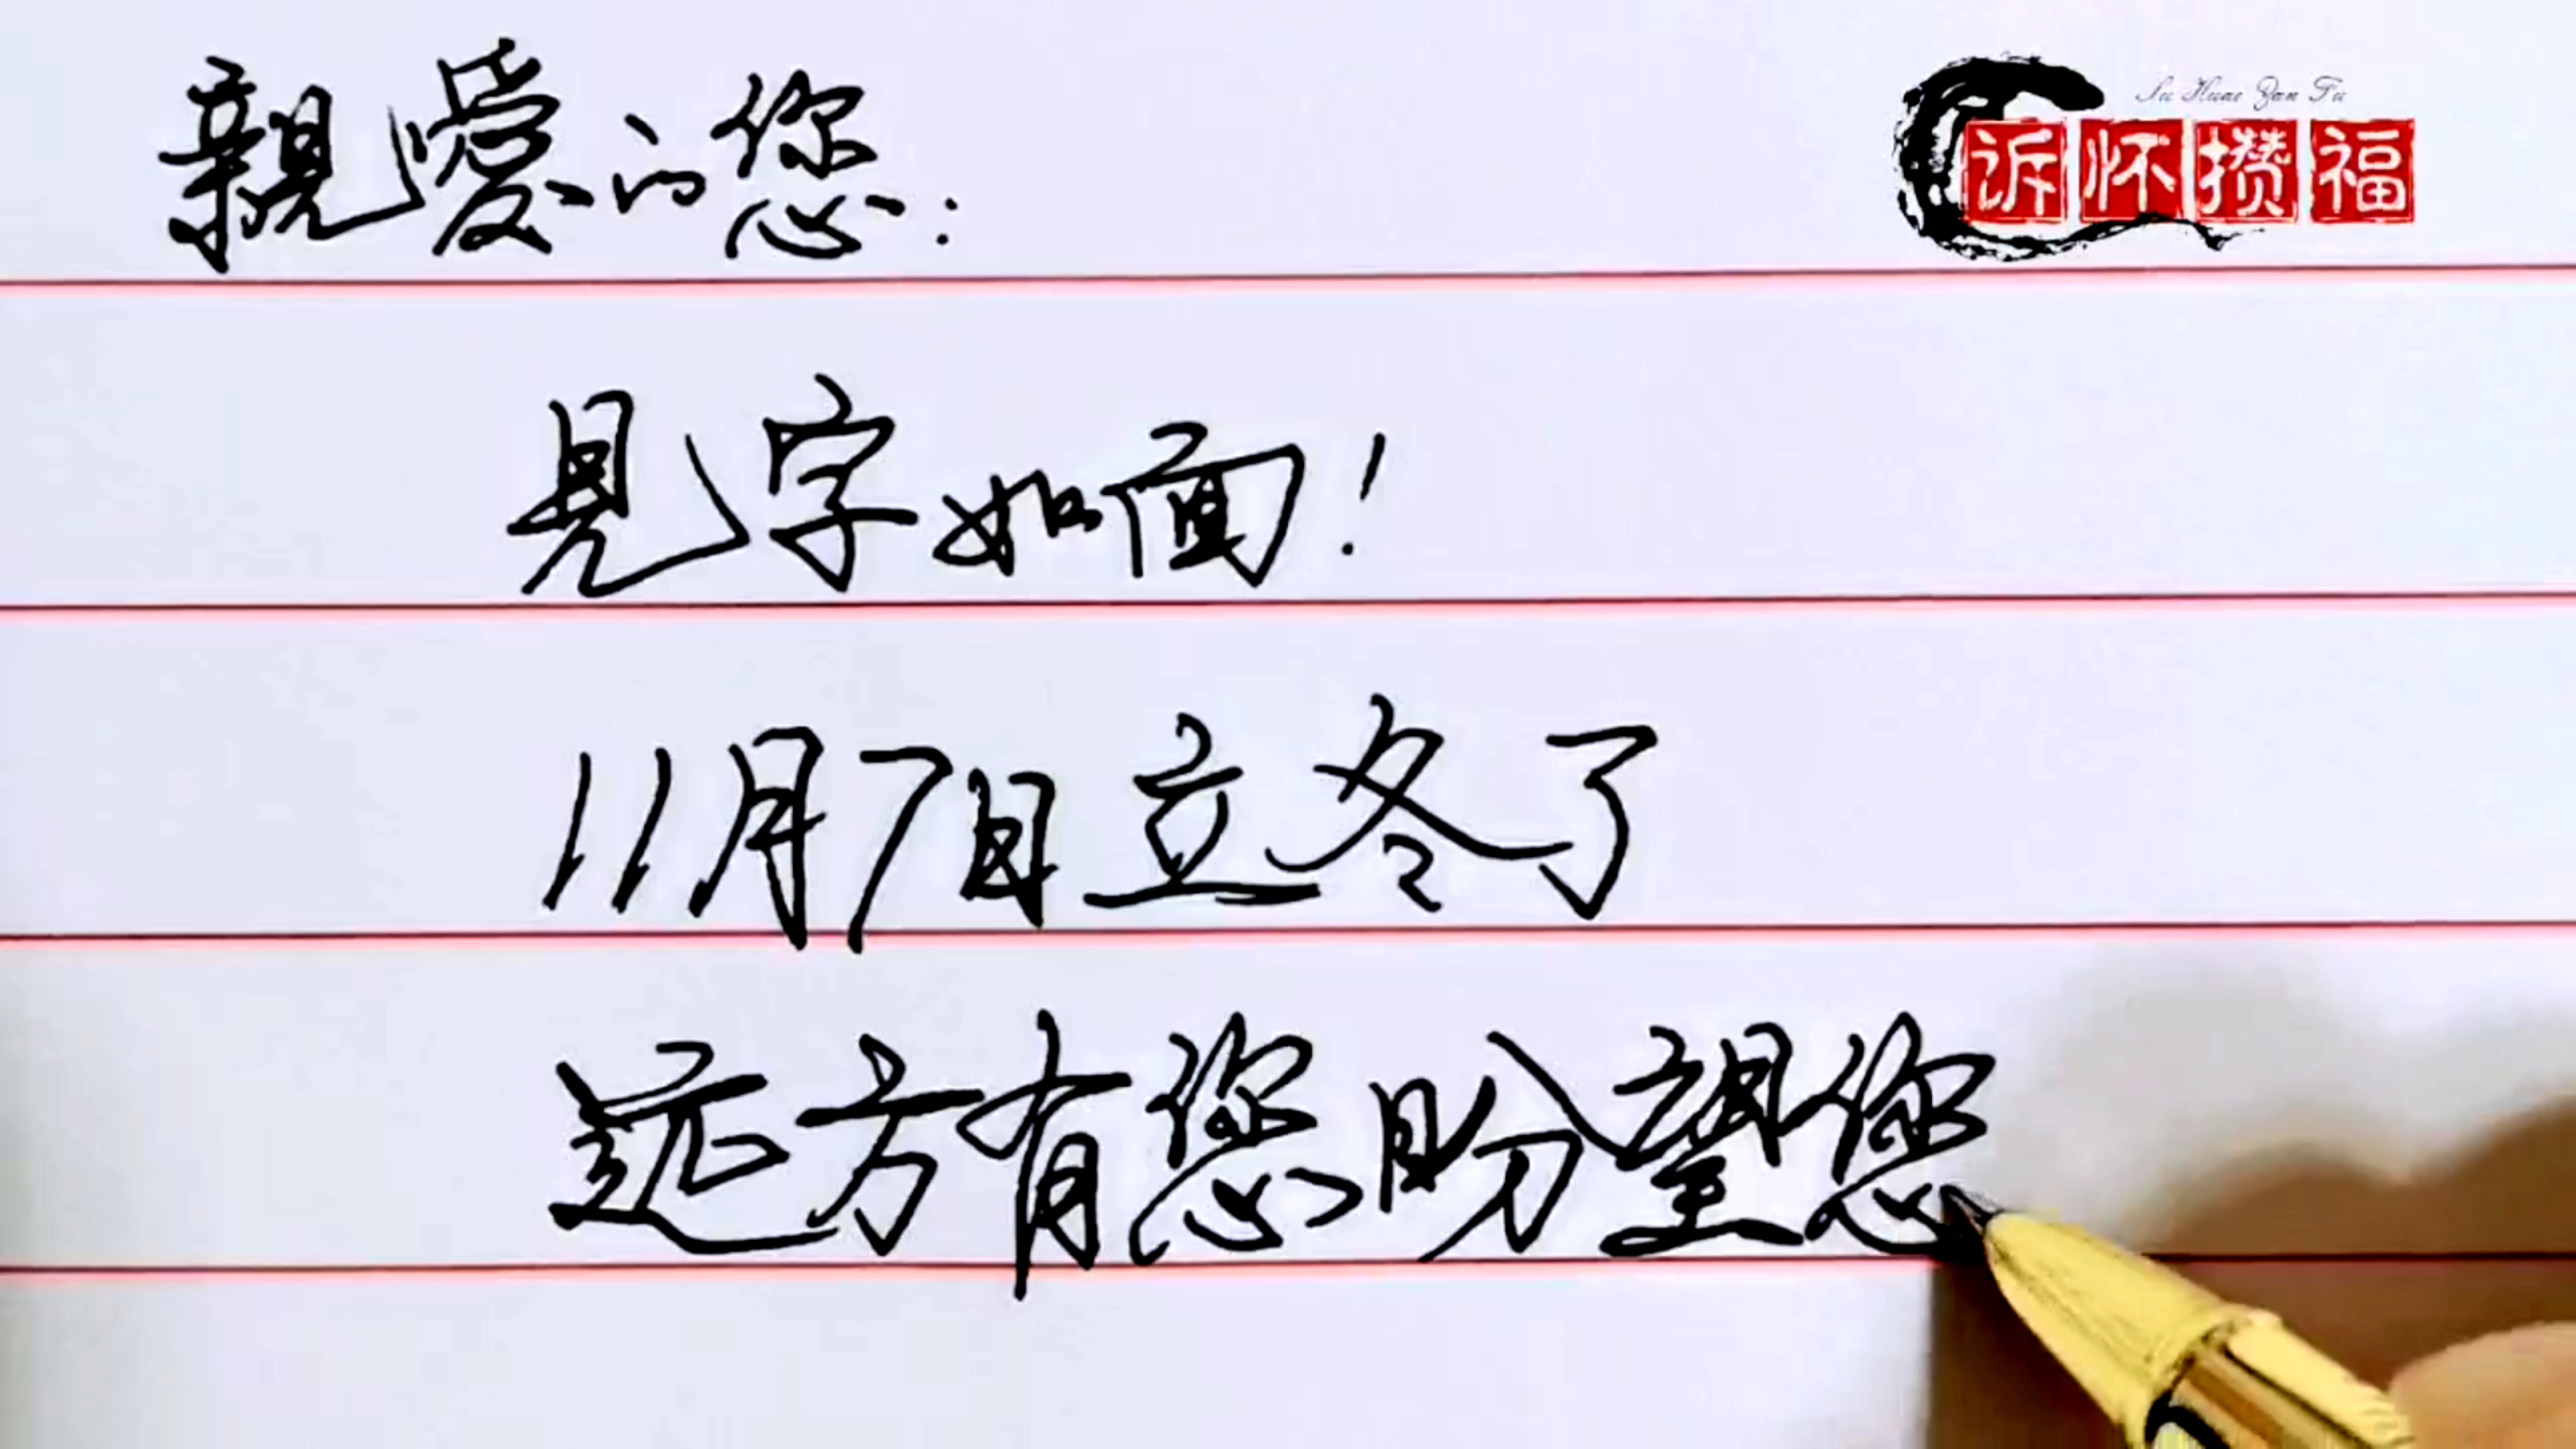 親愛的您：
Su Huai Zan Fu
诉怀攒福
見字如面！
11月7日立冬了
远方有您盼望您